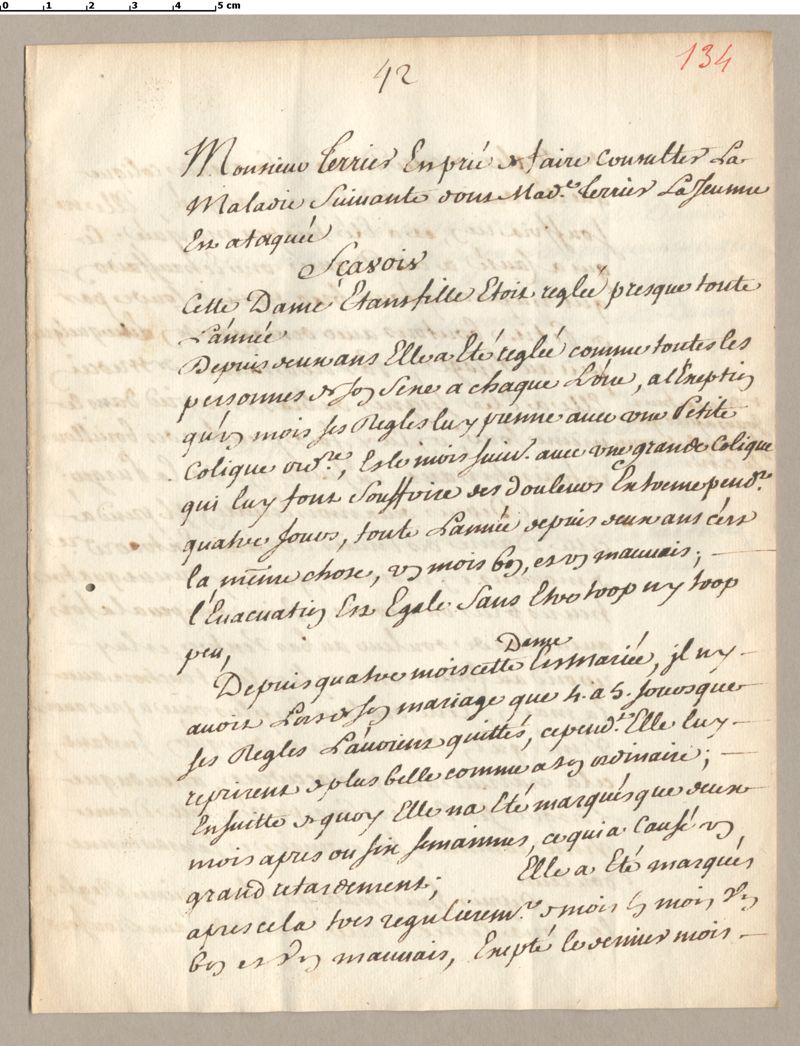 0 1 2 3 4 5 cm
42
134
Monsieur Terrier Est prié de faire Consulter La
Maladie Suivante dont Mad.e Terrier La Jeunne
Est ataquée
Scavoir
Cette Dame Etant fille Etoit regleé presque toute
L'année
Depuis deux ans Elle a Eté regleé comme toutes les
personnes de son Sexe a chaque Lune, a l'Exeption
qu'un mois ses Regles luy prenne avec une Petite
Colique ord.re, Est le mois suiv.t avec une grande Colique
qui luy font Souffrire des douleurs Extreme pend.t
quatre Jours, toute L'année depuis deux ans c'est
la même chose, un mois bon, et un mauvais;
l'Evacuation Est Egale Sans Etre trop ny trop
peu,
Dame
Depuis quatre mois cette s'est mariée, jl n'y
avoit Lors de son mariage que 4. a 5. Jours que
ses Regles L'avoient quittés, cepend.t Elle luy
reprirent de plus belle comme a son ordinaire;
Ensuitte de quoy Elle na Eté marqués que deux
mois apres ou six semainnes, ce qui a Causé un
grand retardement; Elle a Eté marqués
apres cela tres regulierem.t de mois En mois, d'un
bon et d'un mauvais, Exepté le dernier mois